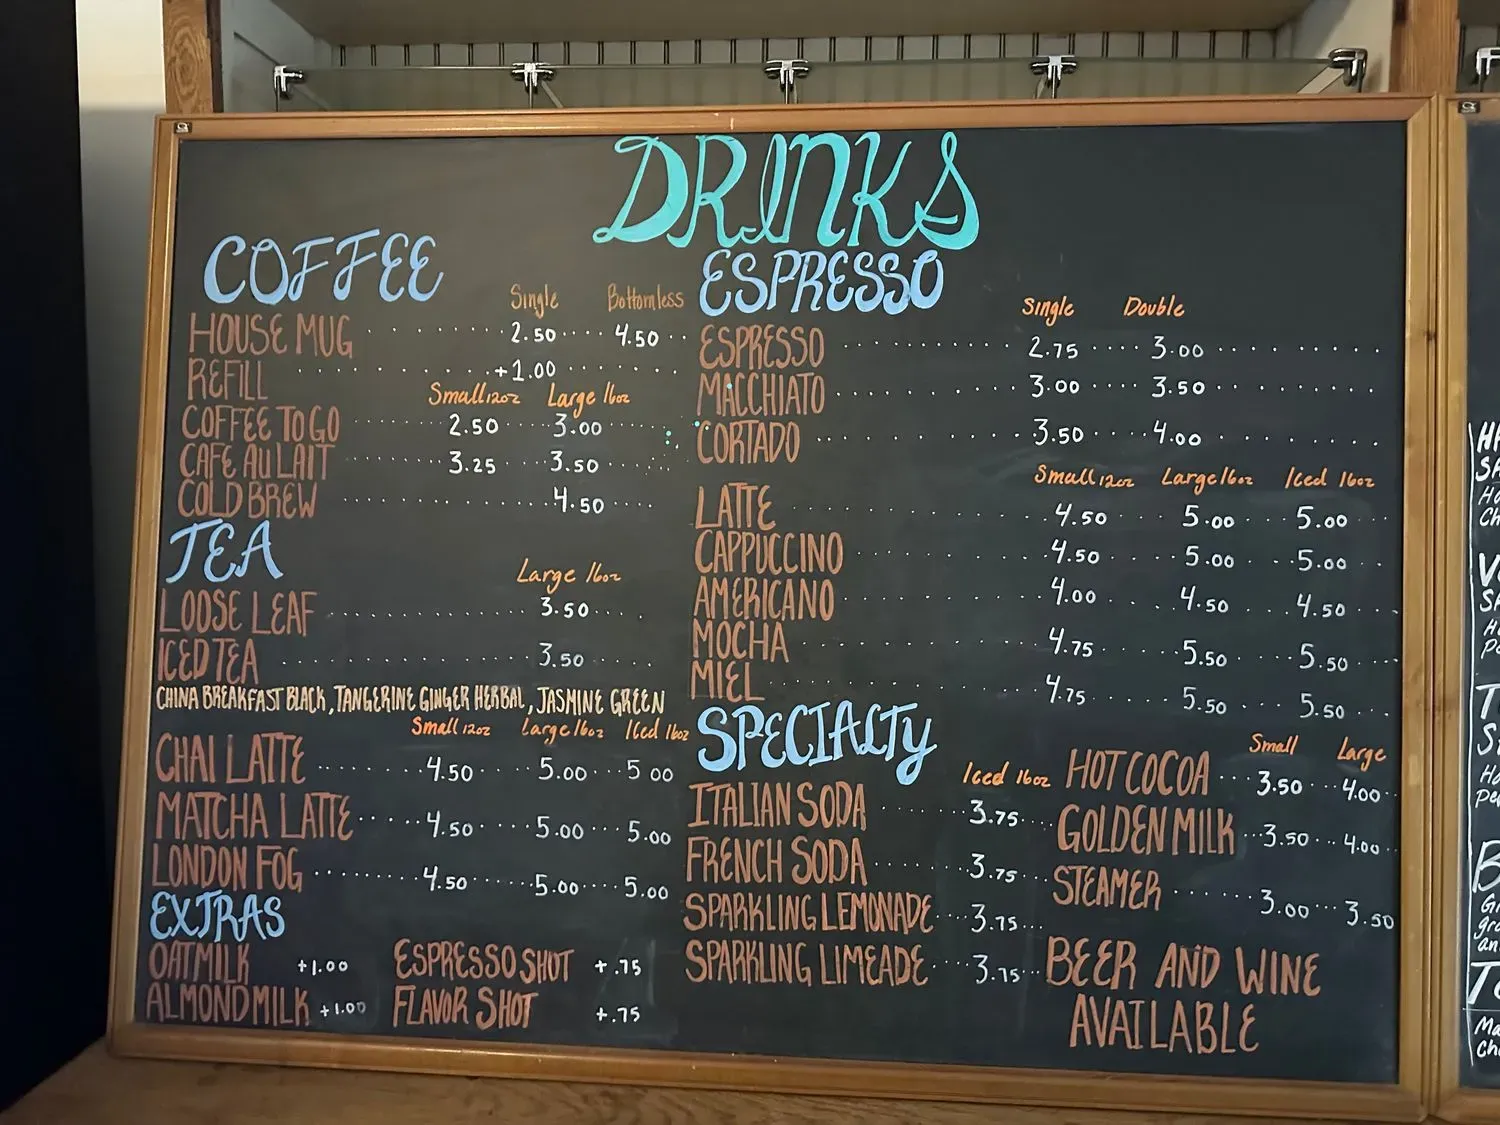 DRINKS
COFFEE
Single Bottomless
HOUSE MUG 2.50 4.50
REFILL +1.00
Small 12oz Large 16oz
COFFEE TO GO 2.50 3.00
CAFE AU LAIT 3.25 3.50
COLD BREW 4.50
TEA
Large 16oz
LOOSE LEAF 3.50
ICED TEA 3.50
CHINA BREAKFAST BLACK, TANGERINE GINGER HERBAL, JASMINE GREEN
Small 12oz Large 16oz Iced 16oz
CHAI LATTE 4.50 5.00 5 00
MATCHA LATTE 4.50 5.00 5.00
LONDON FOG 4.50 5.00 5.00
EXTRAS
OATMILK +1.00 ESPRESSO SHOT +.75
ALMOND MILK +1.00 FLAVOR SHOT +.75
ESPRESSO
Single Double
ESPRESSO 2.75 3.00
MACCHIATO 3.00 3.50
CORTADO 3.50 4.00
Small 12oz Large 16oz Iced 16oz
LATTE 4.50 5.00 5.00
CAPPUCCINO 4.50 5.00 5.00
AMERICANO 4.00 4.50 4.50
MOCHA 4.75 5.50 5.50
MIEL 4.75 5.50 5.50
SPECIALTY
Iced 16oz
ITALIAN SODA 3.75
FRENCH SODA 3.75
SPARKLING LEMONADE 3.75
SPARKLING LIMEADE 3.75
Small Large
HOT COCOA 3.50 4.00
GOLDEN MILK 3.50 4.00
STEAMER 3.00 3.50
BEER AND WINE
AVAILABLE